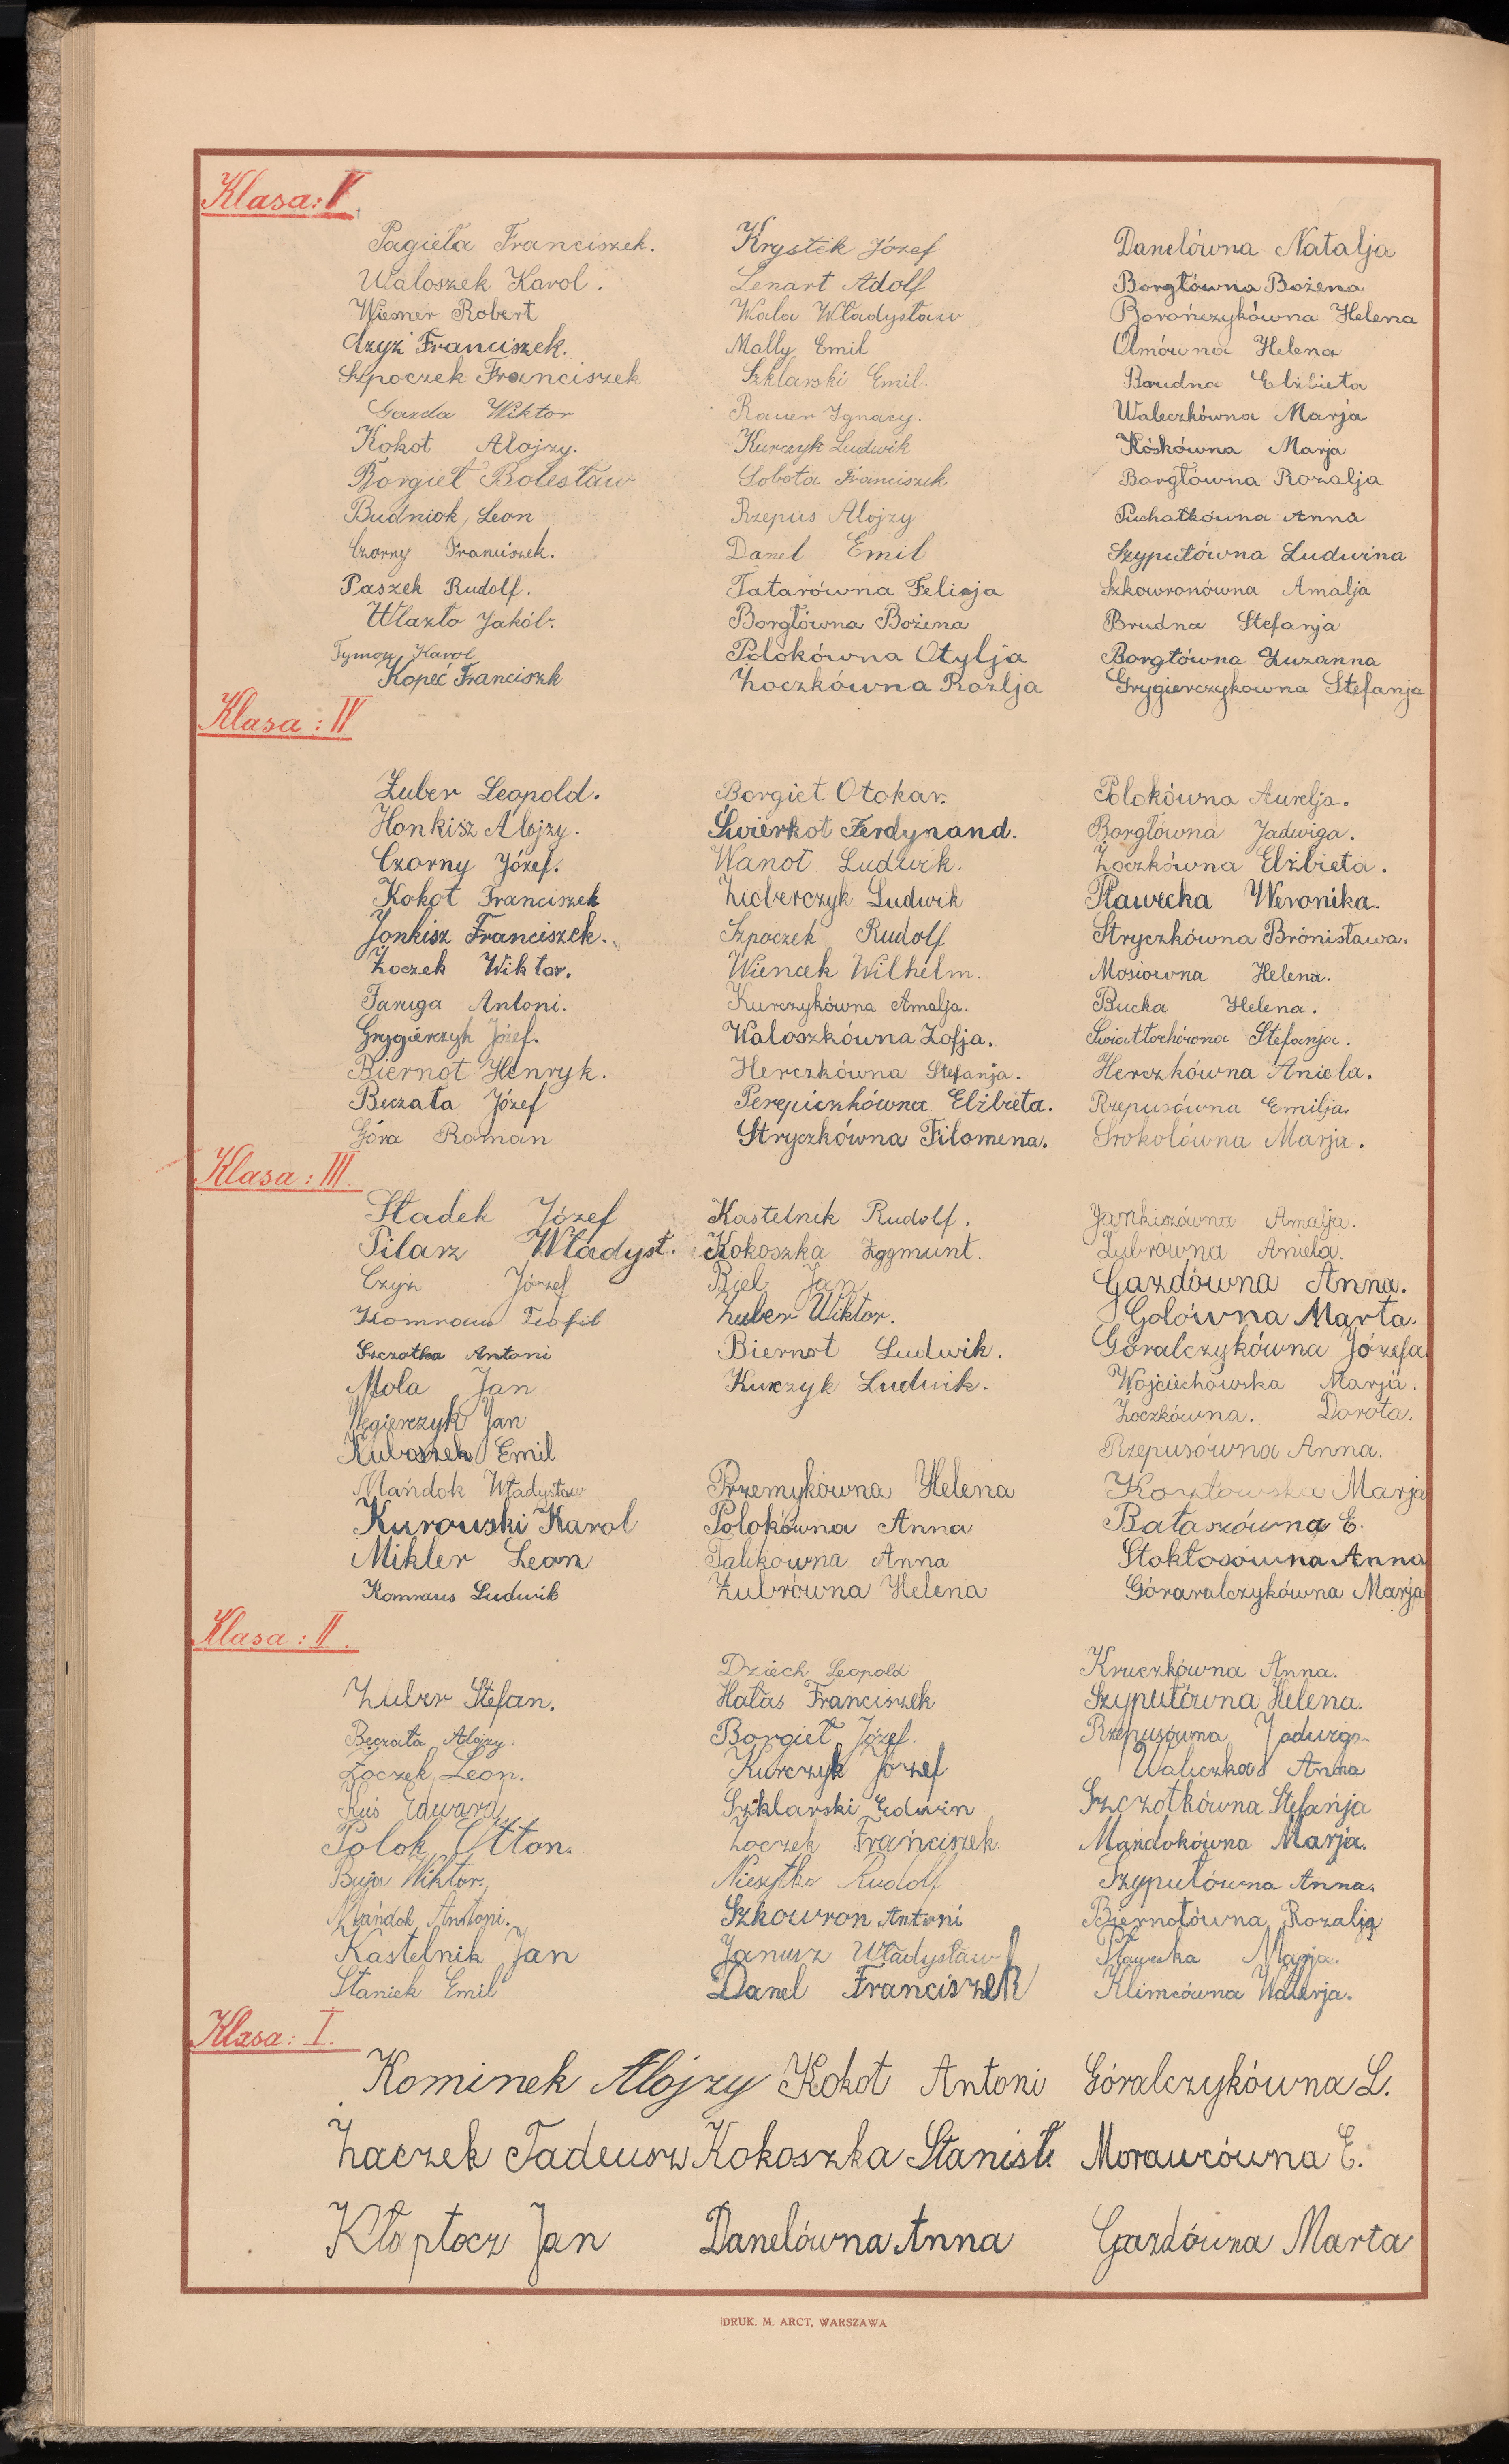 Klasa: V.
Pagieła Franciszek.
Waloszek Karol.
Wiesner Robert
Czyż Franciszek.
Szpoczek Franciszek
Gazda Wiktor
Kokot Alojzy.
Borgieł Bolesław
Budniok, Leon
Czorny Franciszek.
Paszek Rudolf.
Wlazło Jakób.
Tymon Karol
Kopeć Franciszk
Krystek Józef
Lenart Adolf
Wala Władysław
Mally Emil
Szklarski Emil.
Rauer Ignacy.
Kurczyk Ludwik
Sobota Franciszek
Rzepus Alojzy
Danel Emil
Tatarówna Felicja
Borgłówna Bożena
Polokówna Otylja
Żoczkówna Rozlja
Danelówna Natalja
Borgłówna Bożena
Borończykówna Helena
Olmówna Helena
Brudna Elżbieta
Waleczkówna Marja
Kóskówna Marja
Borgłówna Rozalja
Puchałkówna Anna
Szypułówna Ludwina
Szkowronówna Amalja
Brudna Stefanja
Borgłówna Zuzanna
Grygierczykowna Stefanja
Klasa: IV
Żuber Leopold.
Honkisz Alojzy.
Czorny Józef.
Kokot Franciszek
Jonkisz Franciszek.
Żoczek Wiktor.
Faruga Antoni.
Grygierczyk Józef.
Biernot Henryk.
Beczała Józef
Góra Roman
Borgieł Otokar.
Świerkot Ferdynand.
Wanot Ludwik.
Ludwik
Szpoczek Rudolf
Wiencek Wilhelm.
Kurczykówna Amalja.
Waloszkówna Zofja.
Herczkówna Stefanja.
Perepiczkówna Elżbieta.
Stryczkówna Filomena.
Polokówna Aurelja.
Borgłówna Jadwiga.
Żoczkówna Elżbieta.
Sławecka Weronika.
Stryczkówna Brónisława.
Mosiowna Helena.
Bucka Helena.
Światłochówna Stefanja.
Herczkówna Aniela.
Rzepusówna Emilja.
Srokolówna Marja.
Klasa: III.
Sładek Józef
Pilarz Władysł.
Czyż Józef
Komraus Teofil
Szczotka Antoni
Mola Jan
Węgierczyk Jan
Kuboszek Emil
Mańdok Władysław
Kurowski Karol
Mikler Leon
Komraus Ludwik
Kastelnik Rudolf.
Kokoszka Zygmunt.
Biel Jan
Żuber Wiktor.
Biernot Ludwik.
Kurczyk Ludwik.
Przemykówna Helena
Polokówna Anna
Talikowna Anna
Żubrówna Helena
Jankiszówna Amalja.
Żubrówna Aniela.
Gazdówna Anna.
Golówna Marta.
Góralczykówna Józefa
Wojciechowska Marja.
Żoczkówna. Dorota.
Rzepusówna Anna.
Kozłowska Marja
Bałaszówna E.
Stokłosówna Anna
Góraralczykówna Marja
Klasa: II.
Żuber Stefan.
Beczała Alojzy.
Żoczek Leon.
Kuś Edward
Polok Otton.
Buja Wiktor.
Mańdok Anntoni.
Kastelnik Jan
Staniek Emil
Dziech Leopold
Hałas Franciszek
Borgieł Józef.
Kurczyk Józef
Szklarski Edwin
Żoczek Franciszek.
Niesytka Rudolf
Szkowron Antoni
Janusz Władysław
Danel Franciszek
Kruczkówna Anna.
Szypułówna Helena.
Rzepusówna Jadwiga
Waleczka Anna
Szczotkówna Stefanja
Mańdokówna Marja.
Szypułówna Anna.
Biernotówna Rozalja
Sławecka Marja.
Klimcówna Walerja.
Klasa: I.
Kominek Alojzy
Żaczek Tadeusz
Kłoptocz Jan
Kokot Antoni
Kokoszka Stanisł.
Danelówna Anna
Góralczykówna L.
Morawcówna E.
Gazdówna Marta
DRUK. M. ARCT, WARSZAWA